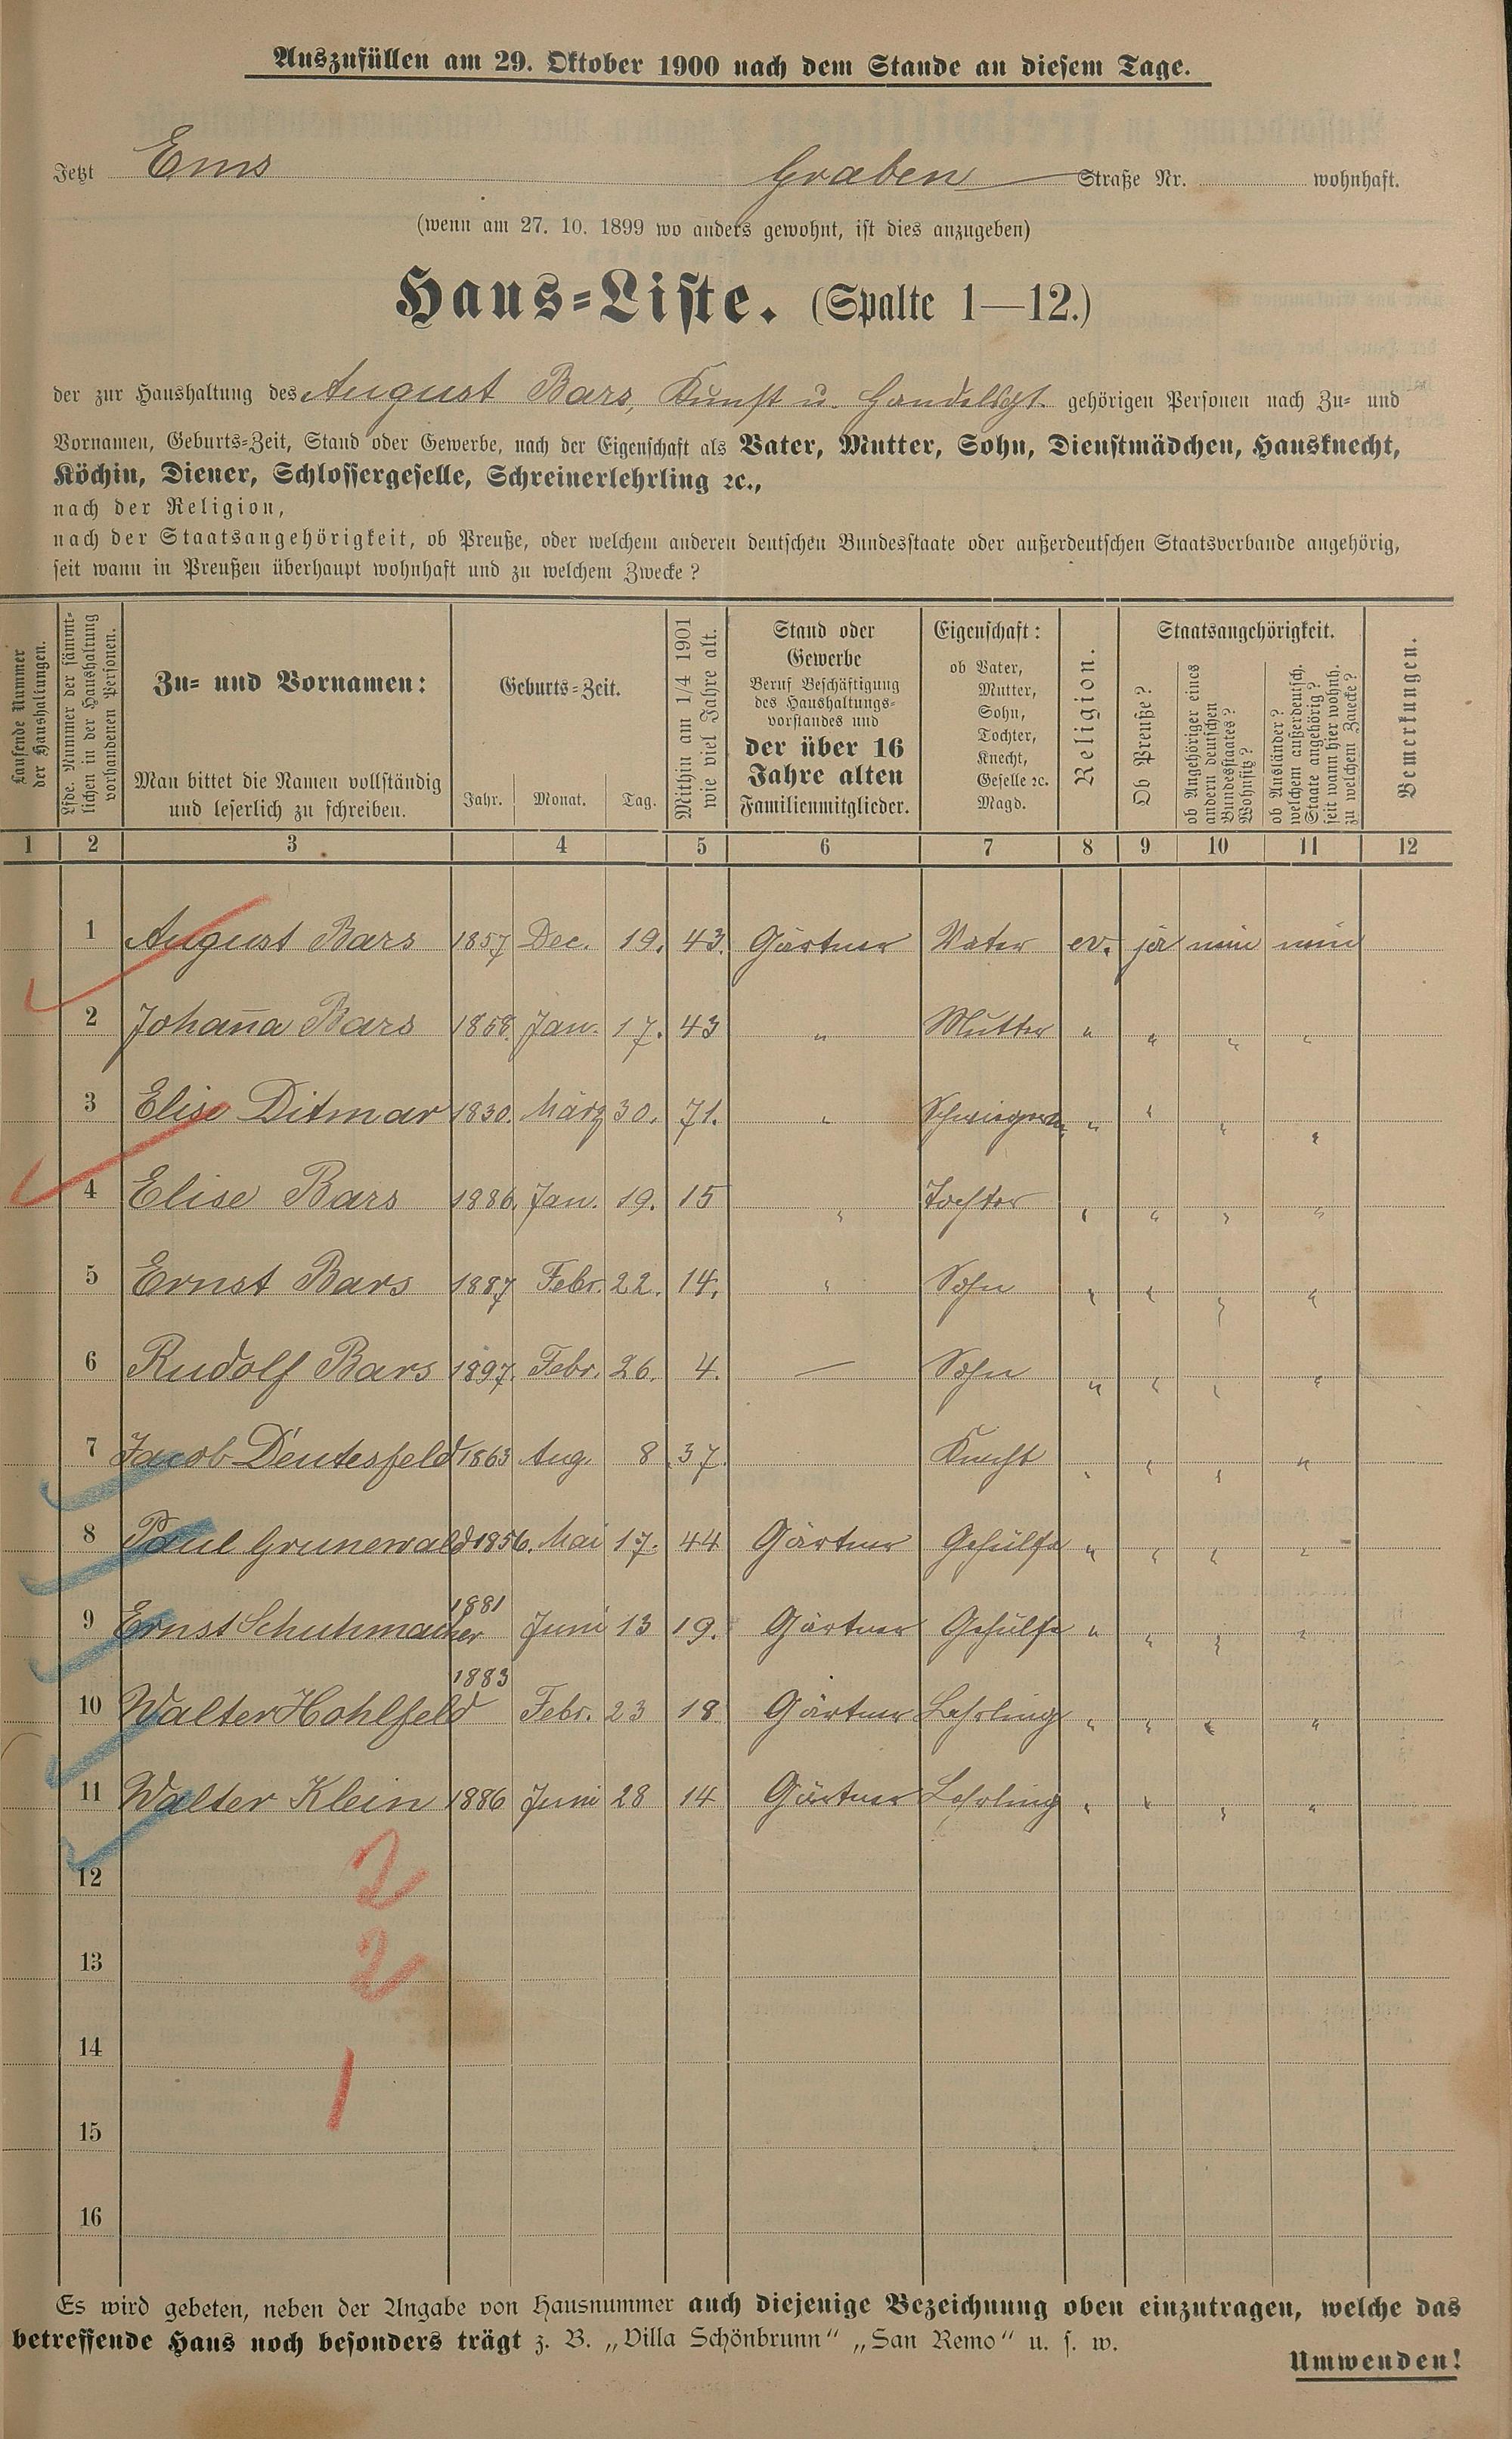 Auszufüllen am 29. Oktober 1900 nach dem Stande an diesem Tage.
Jetzt Ems Graben Straße Nr. wohnhaft.
(wenn am 27. 10. 1899 wo anders gewohnt, ist dies anzugeben)
Haus-Liste. (Spalte 1—12.)
der zur Haushaltung des August Bars, Kunst u. Handelsgt. gehörigen Personen nach Zu- und
Vornamen, Geburts-Zeit, Stand oder Gewerbe, nach der Eigenschaft als Vater, Mutter, Sohn, Dienstmädchen, Hausknecht,
Köchin, Diener, Schlossergeselle, Schreinerlehrling ꝛc.,
nach der Religion,
nach der Staatsangehörigkeit, ob Preuße, oder welchem anderen deutschen Bundesstaate oder außerdeutschen Staatsverbande angehörig,
seit wann in Preußen überhaupt wohnhaft und zu welchem Zwecke?
Laufende Nummer
der Haushaltungen.
Lfde. Nummer der sämmt-
lichen in der Haushaltung
vorhandenen Personen.
Zu- und Vornamen:
Man bittet die Namen vollständig
und leserlich zu schreiben.
Geburts-Zeit.
Jahr. Monat. Tag.
Mithin am 1/4 1901
wie viel Jahre alt.
Stand oder
Gewerbe
Beruf Beschäftigung
des Haushaltungs-
vorstandes und
der über 16
Jahre alten
Familienmitglieder.
Eigenschaft:
ob Vater,
Mutter,
Sohn,
Tochter,
Knecht,
Geselle ꝛc.
Magd.
Religion.
Staatsangehörigkeit.
Ob Preuße?
ob Angehöriger eines
andern deutschen
Bundesstaates?
Wohnsitz?
ob Ausländer?
welchem außerdeutsch.
Staate angehörig?
seit wann hier wohnh.
zu welchem Zwecke?
Bemerkungen.
1 2 3 4 5 6 7 8 9 10 11 12
1 August Bars 1857 Dec. 19. 43. Gärtner Vater ev. ja nein nein
2 Johan̄a Bars 1858. Jan. 17. 43 " Mutter " " " "
3 Elise Ditmar 1830. März 30. 71. " " " " "
4 Elise Bars 1886. Jan. 19. 15 " Tochter " " " "
5 Ernst Bars 1887 Febr. 22. 14. " Sohn " " " "
6 Rudolf Bars 1897. Febr. 26. 4. — Sohn " " " "
7 Jacob Deutesfeld 1863 Aug. 8 37. Knecht " " " "
8 Paul Grunewald 1856. Mai 17. 44 Gärtner Gehülfe " " " "
9 Ernst Schuhmacher 1881 Juni 13 19. Gärtner Gehülfe " " " "
10 Walter Hohlfeld 1883 Febr. 23 18 Gärtner Lehrling " " " "
11 Walter Klein 1886 Juni 28 14 Gärtner Lehrling " " " "
12 2
13 2
14
1
15
16
Es wird gebeten, neben der Angabe von Hausnummer auch diejenige Bezeichnung oben einzutragen, welche das
betreffende Haus noch besonders trägt z. B. „Villa Schönbrunn“ „San Remo“ u. s. w.
Umwenden!